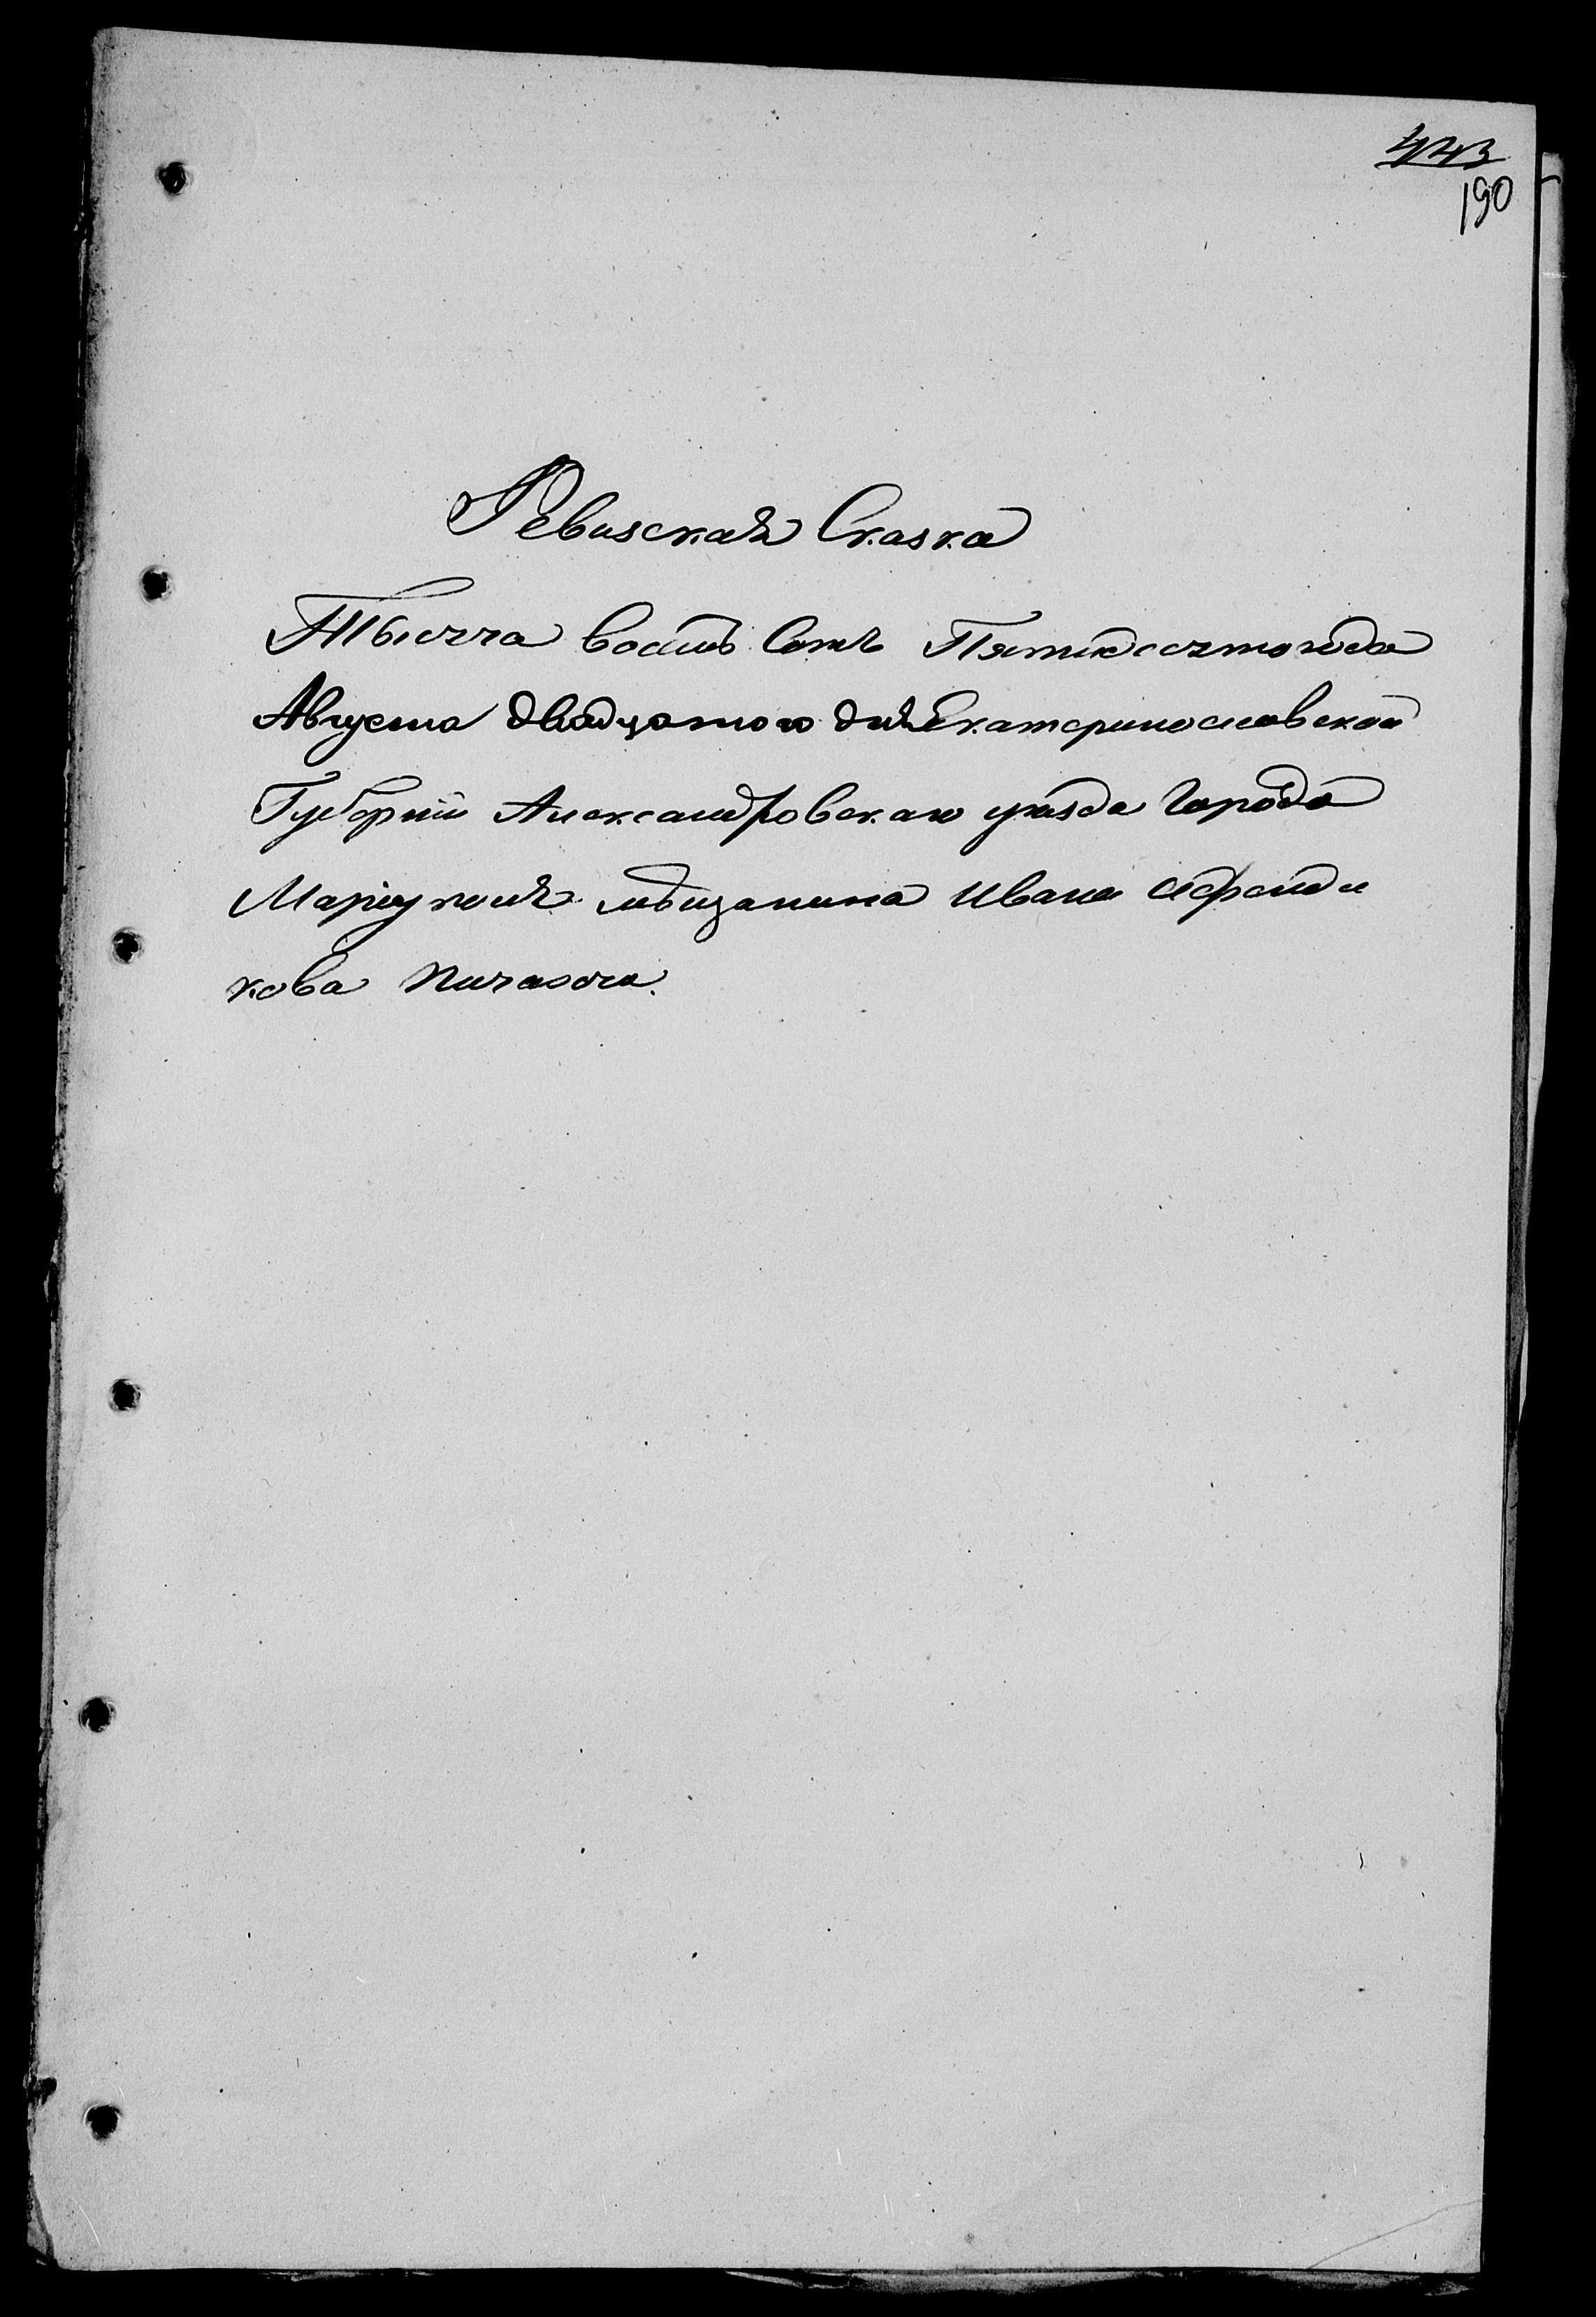 443
190
Ревизская Сказка
Тысяча восемь Сотъ Пятидесятого года
Августа двадцатого дня Екатеринославской
Губерніи Александровскаго уѣзда Города
Маріуполя мѣщанина Ивана Афенди
кова